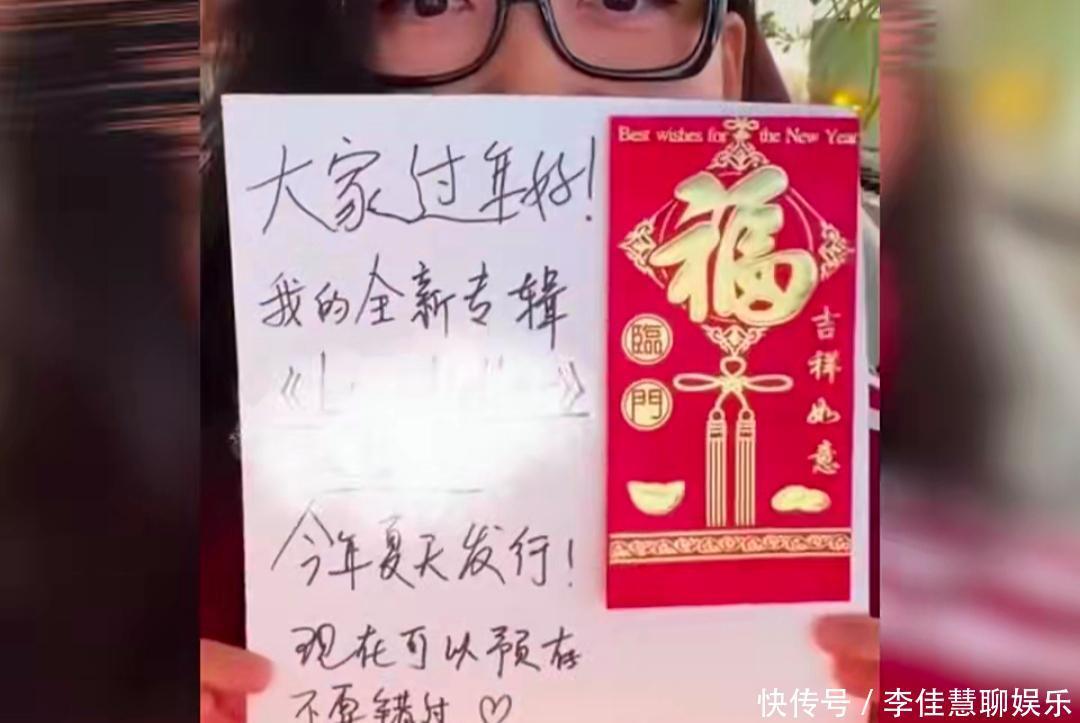 大家过年好!
我的全新专辑
《 》
今年夏天发行!
现在可以预存
不要错过♡
Best wishes for the New Year
福
臨
門
吉祥如意
快传号 / 李佳慧聊娱乐